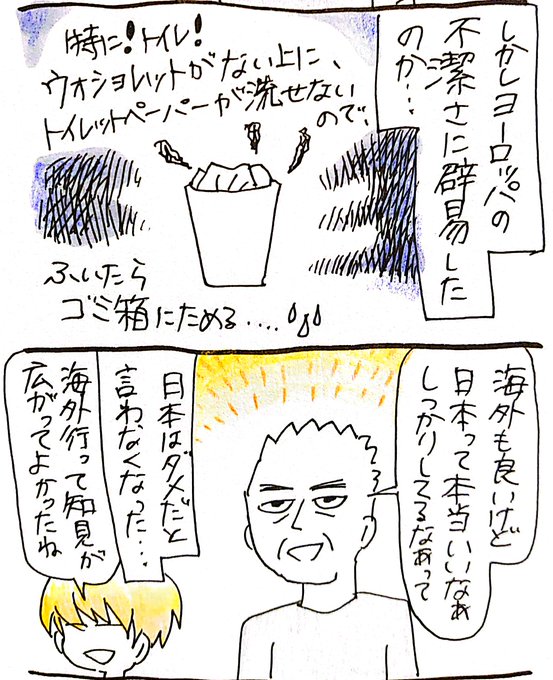 しかしヨーロッパの
不潔さに辟易した
のか…
特に！トイレ！
ウォシュレットがない上に、
トイレットペーパーが流せない
ので、
ふいたら
ゴミ箱にためる....
海外も良いけど
日本って本当いいなぁ
しっかりしてるなぁって
日本はダメだと
言わなくなった…
海外行って知見が
広がってよかったね